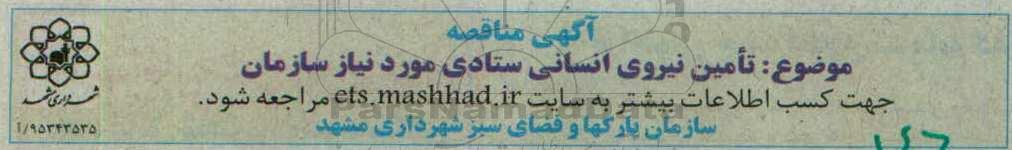 آگهی مناقصه
موضوع: تأمین نیروی انسانی ستادی مورد نیاز سازمان
جهت کسب اطلاعات بیشتر به سایت ets.mashhad.ir مراجعه شود.
سازمان پارکها و فضای سبز شهرداری مشهد
شهرداری مشهد
۹۵۳۴۳۵۳۵/آ